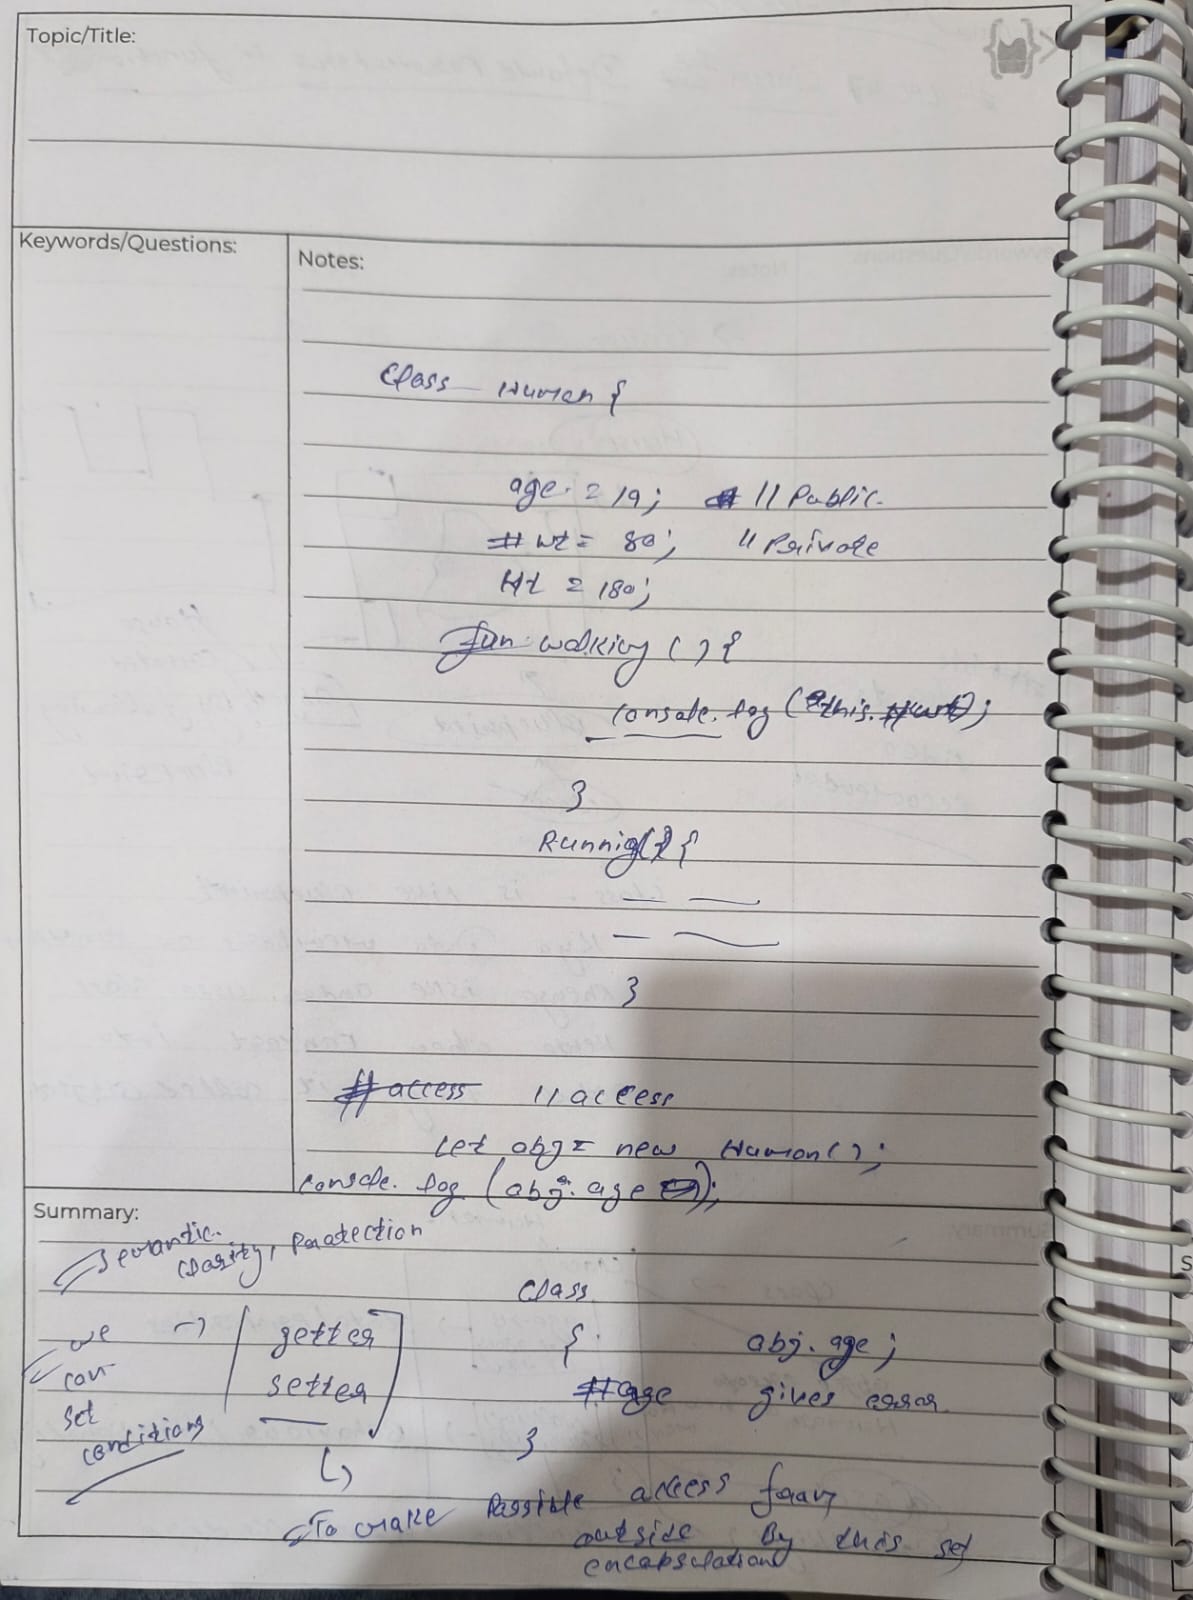 Topic/Title:
Keywords/Questions:
Notes:
Class Human {
age = 19; // Public
# wt = 80; // Private
Ht = 180;
fun walking () {
console.log (this.#wt);
}
Runnig() {
}
# access // access
Let obj = new Human();
console.log (obj.age);
Summary:
Semantic.
clarity, Protection
we can set conditions
→ [getter
setter]
To make Possible access from
outside By this set
encapsulation
Class
{ obj.age;
#age gives error
}